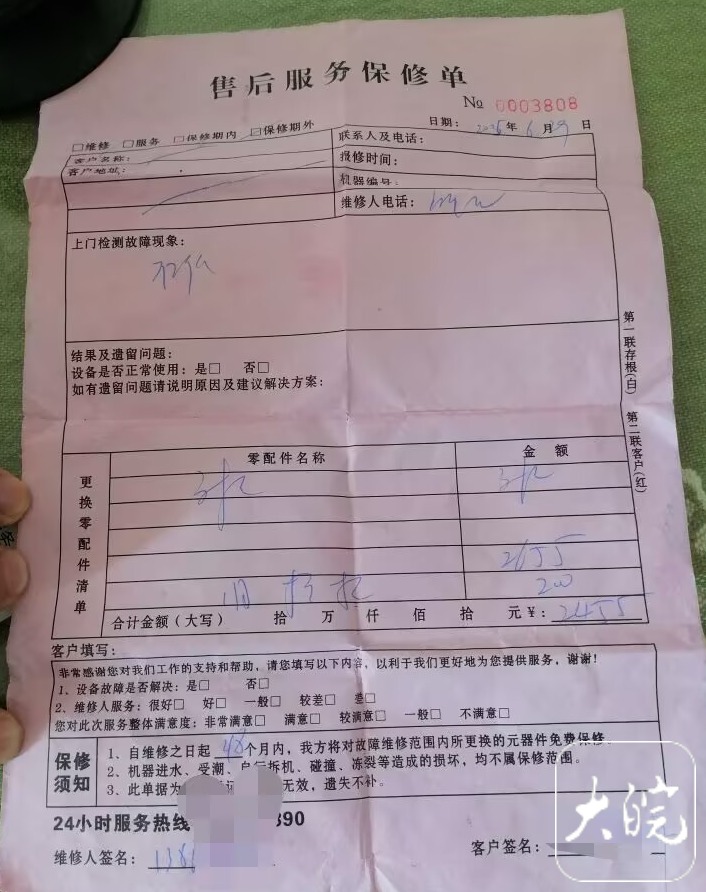 售后服务保修单
No 0003808
日期: 年 6 月 29 日
□维修 □服务 □保修期内 □保修期外
客户名称:
联系人及电话:
客户地址:
报修时间:
机器编号:
维修人电话:
上门检测故障现象:
结果及遗留问题:
设备是否正常使用: 是□ 否□
如有遗留问题请说明原因及建议解决方案:
第一联存根(白) 第二联客户(红)
更换零配件清单
零配件名称 金额
2655
旧 200
合计金额(大写) 拾 万 仟 佰 拾 元¥: 2455
客户填写:
非常感谢您对我们工作的支持和帮助,请您填写以下内容,以利于我们更好地为您提供服务,谢谢!
1、设备故障是否解决: 是□ 否□
2、维修人服务: 很好□ 好□ 一般□ 较差□ 差□
您对此次服务整体满意度: 非常满意□ 满意□ 较满意□ 一般□ 不满意□
保修须知
1、自维修之日起 48 个月内,我方将对故障维修范围内所更换的元器件免费保修。
2、机器进水、受潮、自行拆机、碰撞、冻裂等造成的损坏,均不属保修范围。
3、此单据为 无效,遗失不补。
24小时服务热线 890
维修人签名: 138
客户签名:
大皖